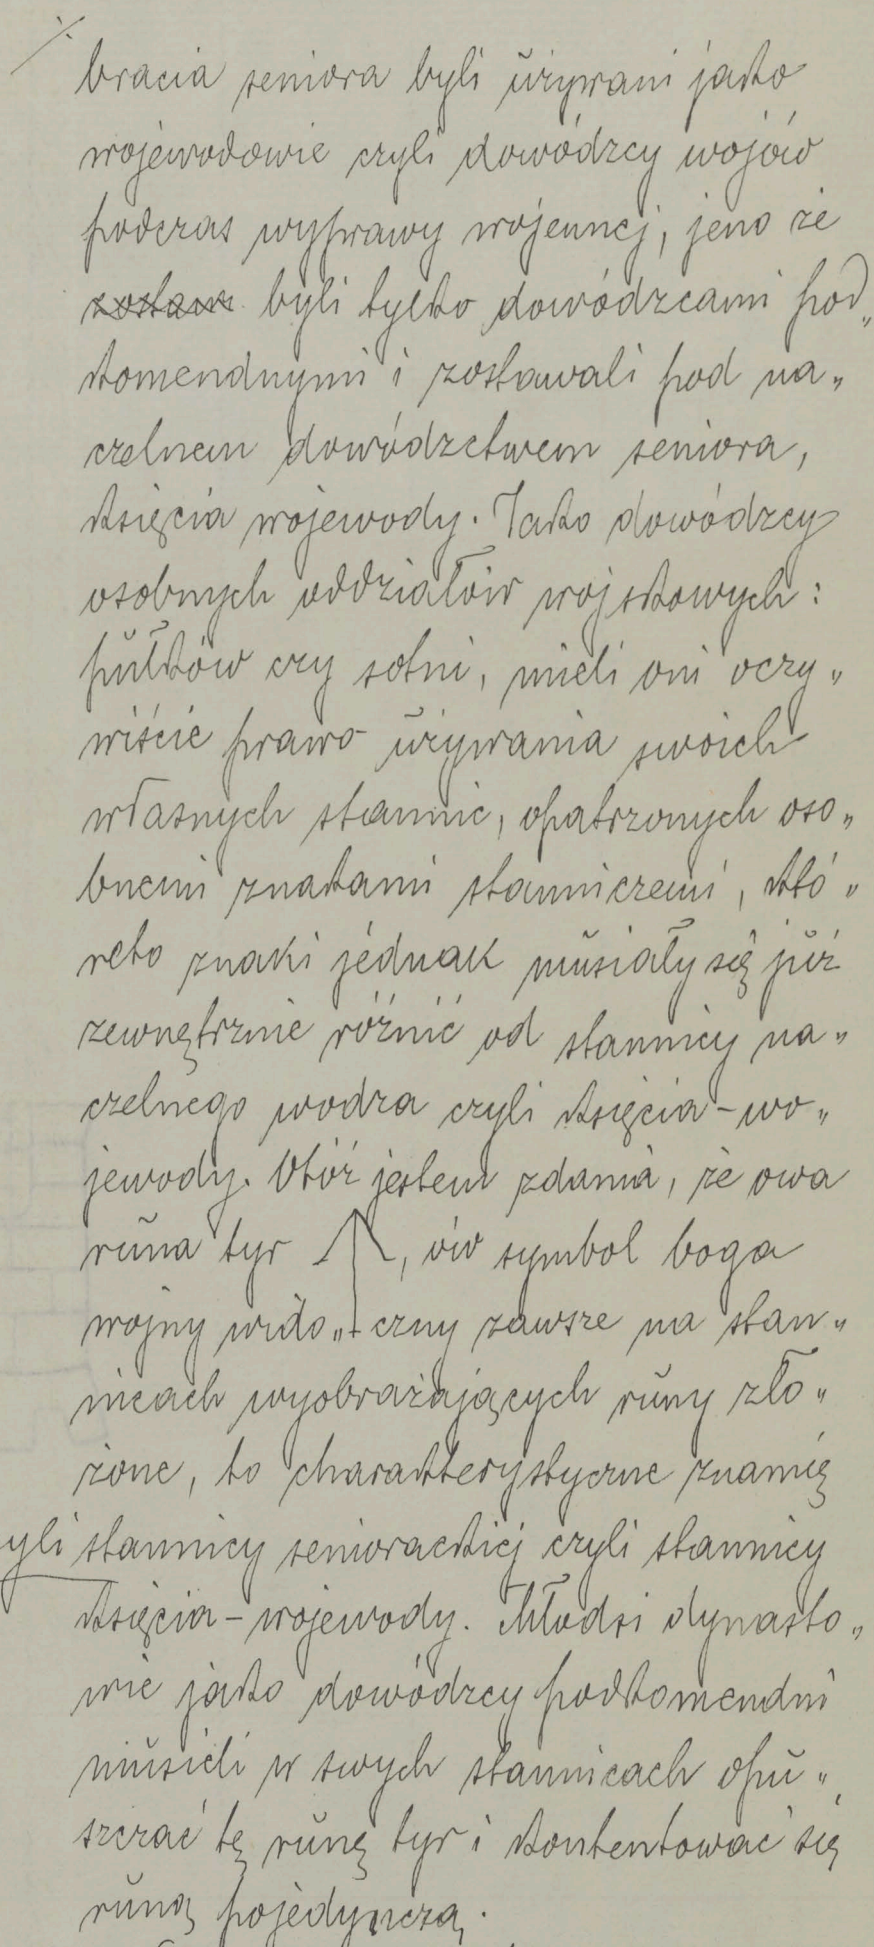 ./.
bracia seniora byli używani jako
wojewodowie czyli dowódzcy wojów
podczas wyprawy wojennej, jeno że
zostaw byli tylko dowódzcami pod„
komendnymi i zostawali pod na„
czelnem dowództwem seniora,
księcia wojewody. Jako dowódzcy
osobnych oddziałów wojskowych:
pułków czy sotni, mieli oni oczy„
wiście prawo używania swoich
własnych stannic, opatrzonych oso„
bnemi znakami stanniczemi, któ„
reto znaki jednak musiały się już
zewnętrznie różnić od stannicy na„
czelnego wodza czyli księcia-wo„
jewody. Otóż jestem zdania, że owa
runa tyr ᛏ, ów symbol boga
wojny wido„czny zawsze na stan„
nicach wyobrażających runy zło„
żone, to charakterystyczne znamię
yli stannicy seniorackiej czyli stannicy
księcia-wojewody. Młodsi dynasto„
wie jako dowódzcy podkomendni
musieli w swych stannicach opu„
szczać tę runę tyr i kontentować się
runą pojedynczą.